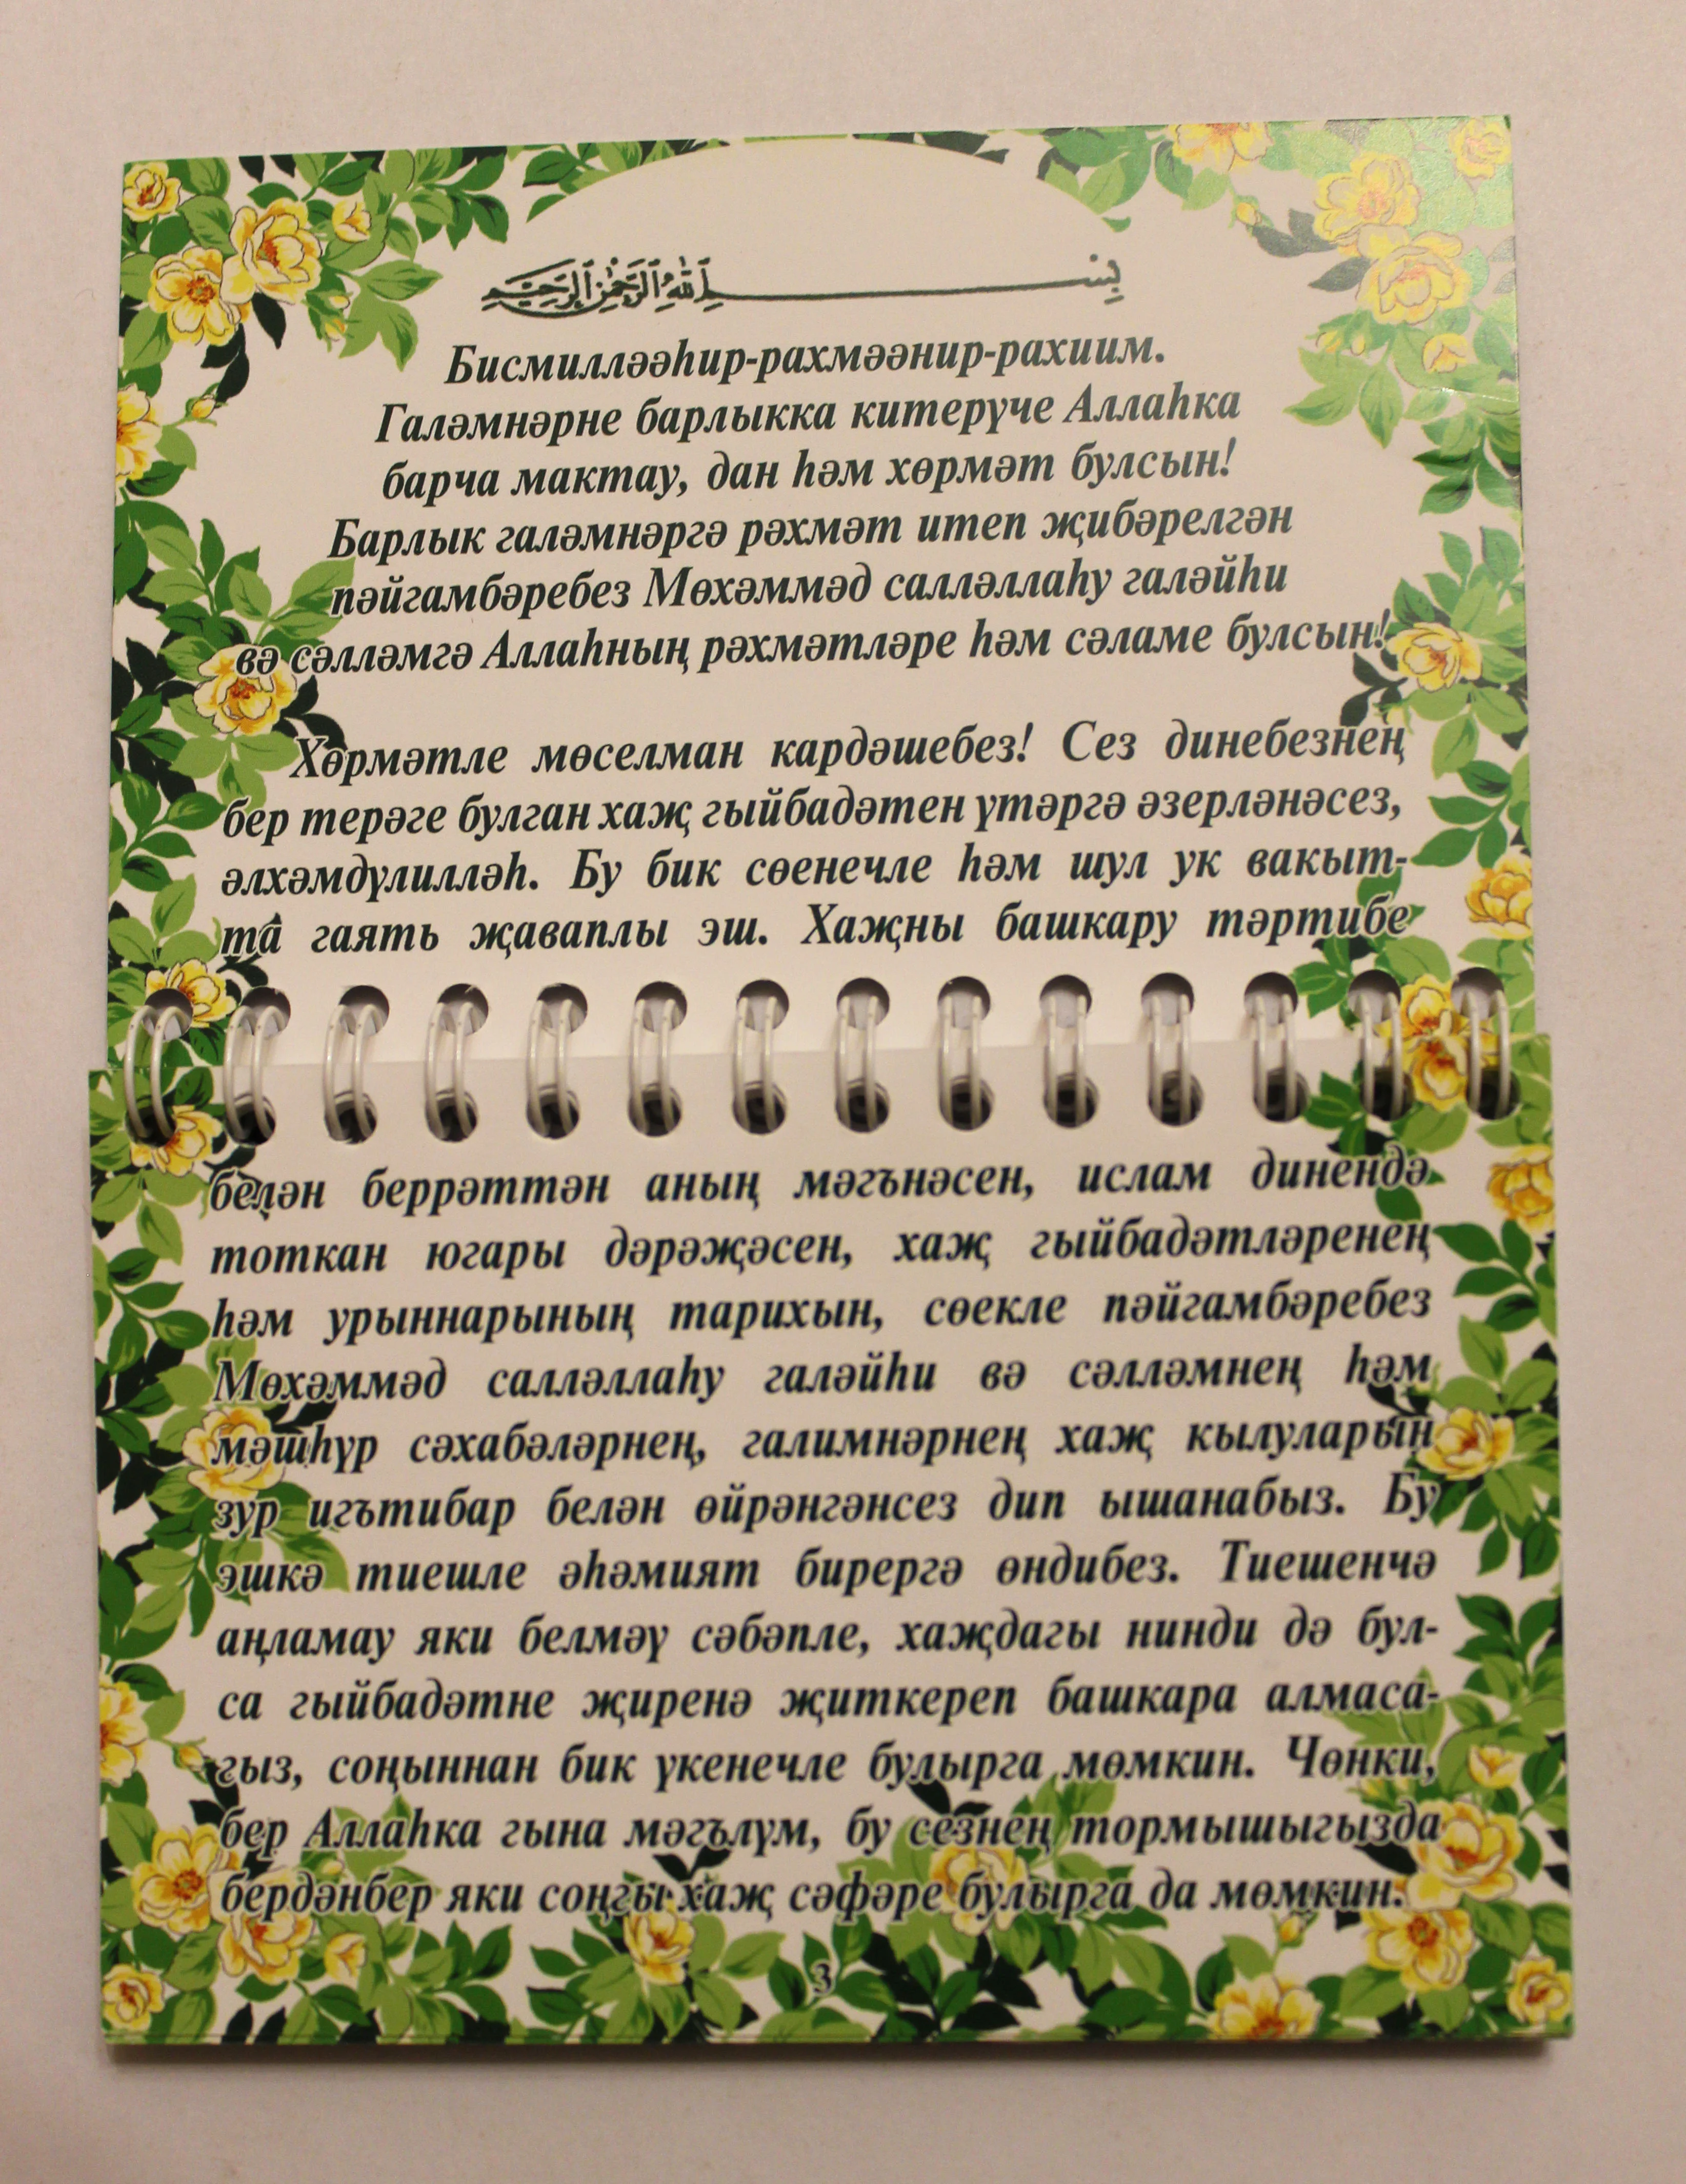 بِسْــــــــــمِ ٱللَّٰهِ ٱلرَّحْمَٰنِ ٱلرَّحِيمِ
Бисмилләәһир-рахмәәнир-рахиим.
Галәмнәрне барлыкка китерүче Аллаһка
барча мактау, дан һәм хөрмәт булсын!
Барлык галәмнәргә рәхмәт итеп җибәрелгән
пәйгамбәребез Мөхәммәд салләллаһу галәйһи
вә сәлләмгә Аллаһның рәхмәтләре һәм сәламе булсын!
Хөрмәтле мөселман кардәшебез! Сез динебезнең
бер терәге булган хаҗ гыйбадәтен үтәргә әзерләнәсез,
әлхәмдүлилләһ. Бу бик сөенечле һәм шул ук вакыт-
та гаять җаваплы эш. Хаҗны башкару тәртибе
белән беррәттән аның мәгънәсен, ислам динендә
тоткан югары дәрәҗәсен, хаҗ гыйбадәтләренең
һәм урыннарының тарихын, сөекле пәйгамбәребез
Мөхәммәд салләллаһу галәйһи вә сәлләмнең һәм
мәшһүр сәхабәләрнең, галимнәрнең хаҗ кылуларын
зур игътибар белән өйрәнгәнсез дип ышанабыз. Бу
эшкә тиешле әһәмият бирергә өндибез. Тиешенчә
аңламау яки белмәү сәбәпле, хаҗдагы нинди дә бул-
са гыйбадәтне җиренә җиткереп башкара алмаса-
гыз, соңыннан бик үкенечле булырга мөмкин. Чөнки,
бер Аллаһка гына мәгълүм, бу сезнең тормышыгызда
бердәнбер яки соңгы хаҗ сәфәре булырга да мөмкин.
3